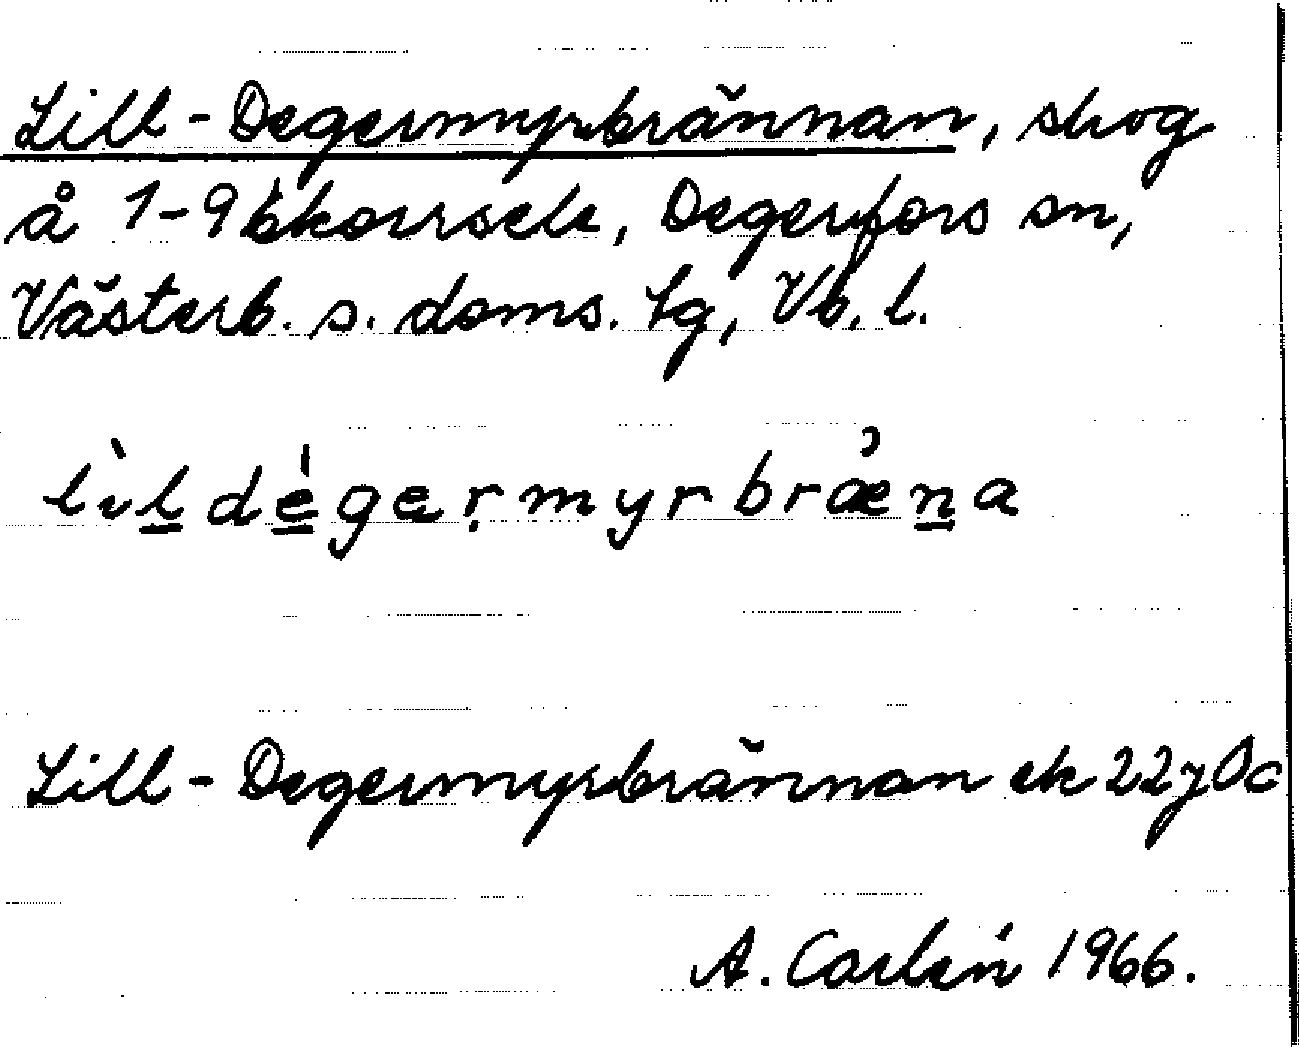 Lill-Degermyrbrännan, skog
å 1-9 Ekorrsele, Degerfors sn,
Västerb. s. doms. tg, Vb. l.
lìl dégermyrbræna
Lill-Degermyrbrännan ek 22 J 0 c
A. Carlén 1966.